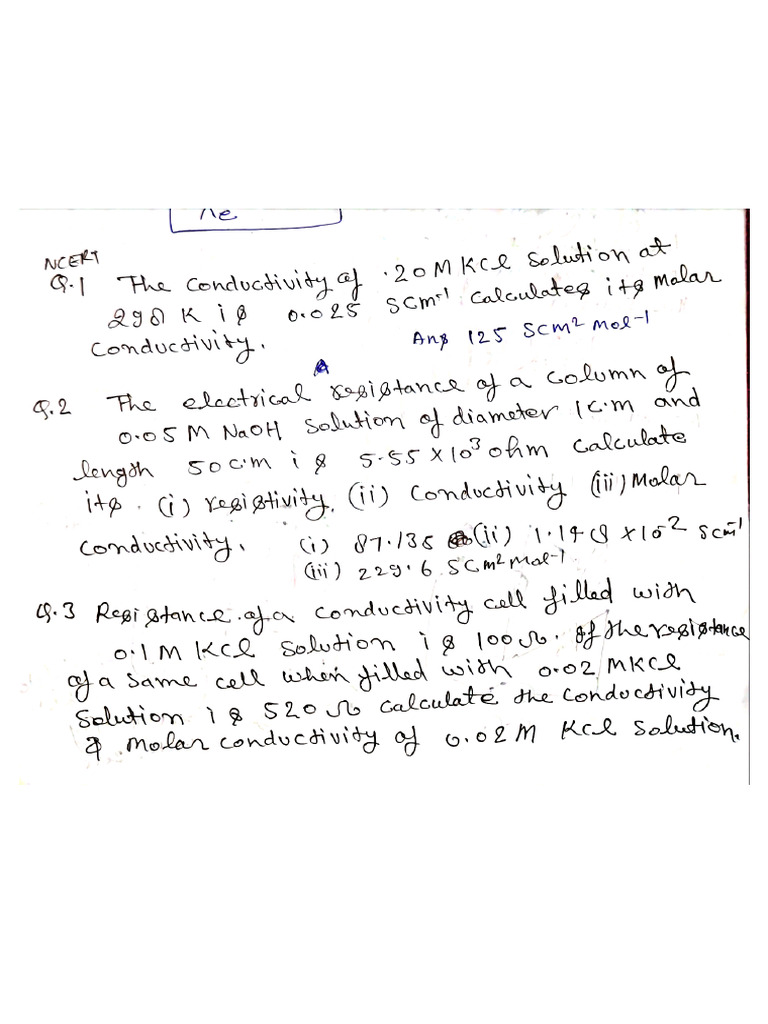 Λe
NCERT
Q.1 The conductivity of .20 M KCl solution at
298 K is 0.025 Scm-1 calculates its molar
conductivity. Ans 125 Scm2 mol-1
Q.2 The electrical resistance of a column of
0.05 M NaOH solution of diameter 1 c.m and
length 50 c.m is 5.55 × 10³ ohm calculate
its. (i) resistivity. (ii) conductivity (iii) Molar
conductivity. (i) 87.135 (ii) 1.148 × 10-2 S cm-1
(iii) 229.6 S cm2 mol-1.
Q.3 Resistance of a conductivity cell filled with
0.1 M KCl solution is 100 Ω. If the resistance
of a same cell when filled with 0.02 M KCl
solution is 520 Ω calculate the conductivity
& molar conductivity of 0.02 M KCl solution.